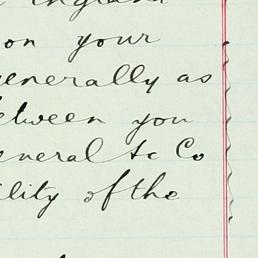 on your
generally as
between you
eneral &c Co
ility of the